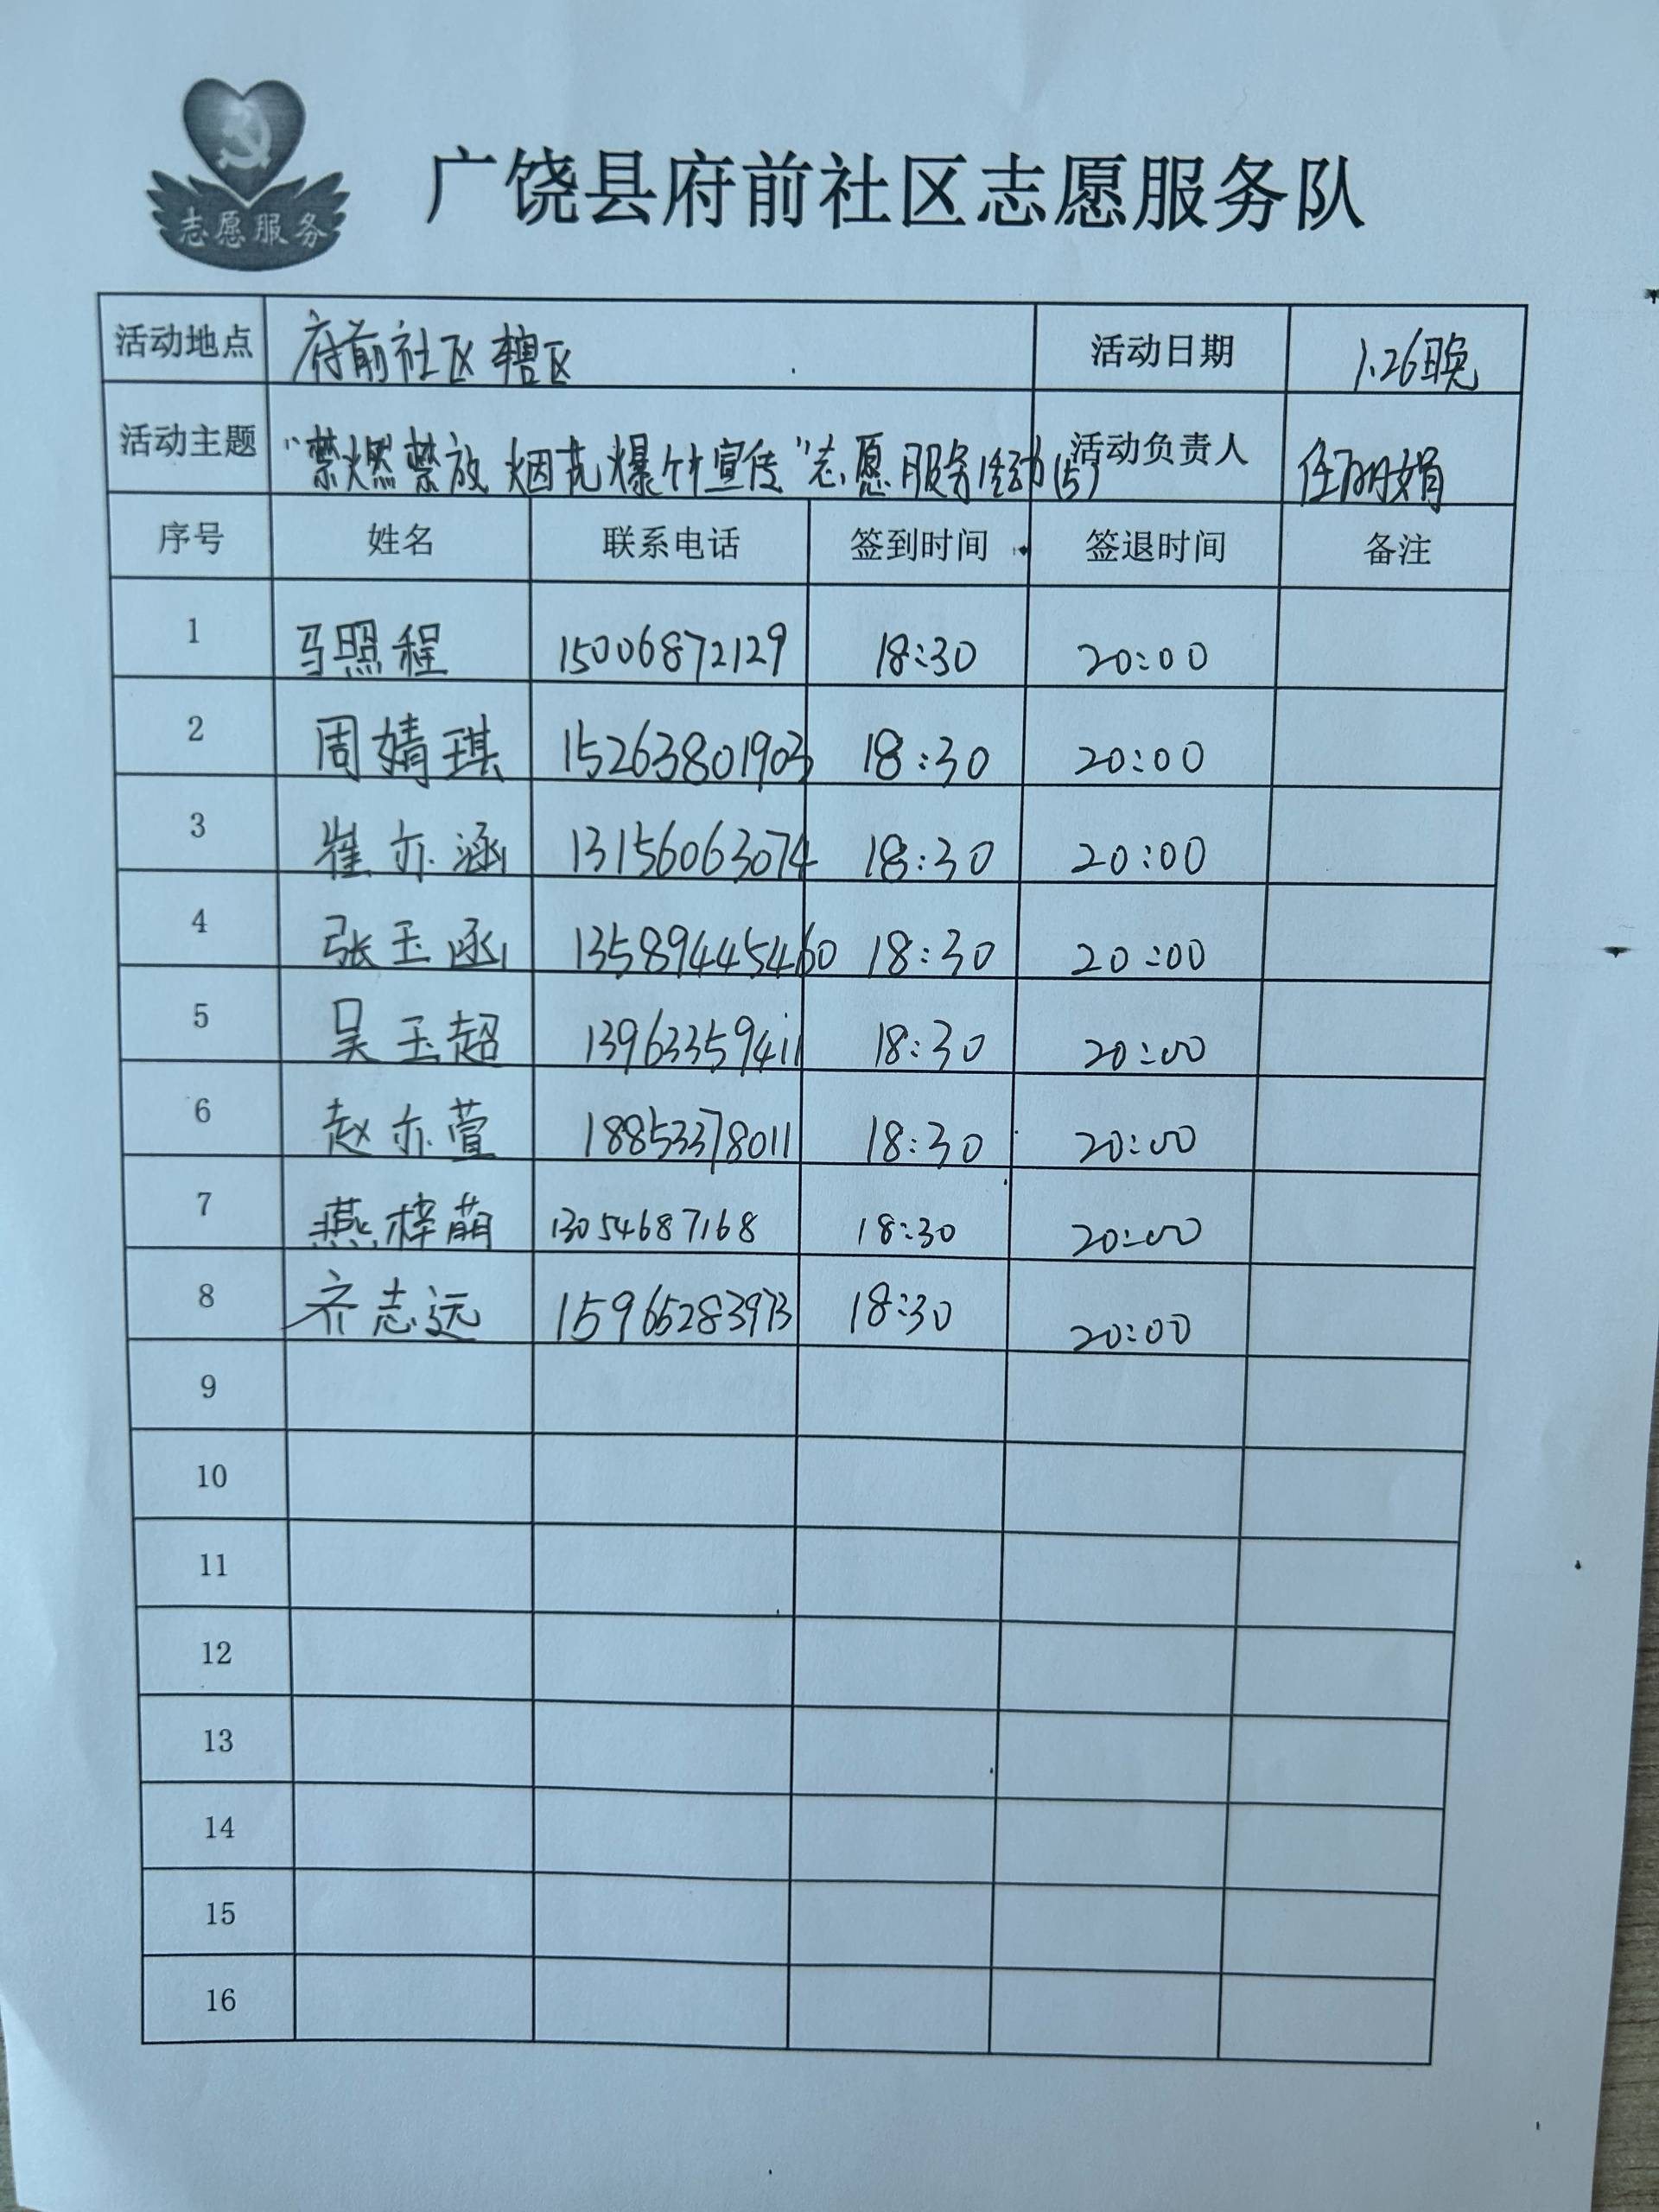 志愿服务
广饶县府前社区志愿服务队
活动地点 府前社区辖区 活动日期 1.26晚
活动主题 "禁燃禁放烟花爆竹宣传"志愿服务活动(5) 活动负责人 任丽娟
序号 姓名 联系电话 签到时间 签退时间 备注
1 马照程 15006872129 18:30 20:00
2 周婧琪 15263801903 18:30 20:00
3 崔亦涵 13156063074 18:30 20:00
4 张玉函 13589445460 18:30 20:00
5 吴玉超 13963359411 18:30 20:00
6 赵亦萱 18853378011 18:30 20:00
7 燕梓萌 13054687168 18:30 20:00
8 齐志远 15965283973 18:30 20:00
9
10
11
12
13
14
15
16